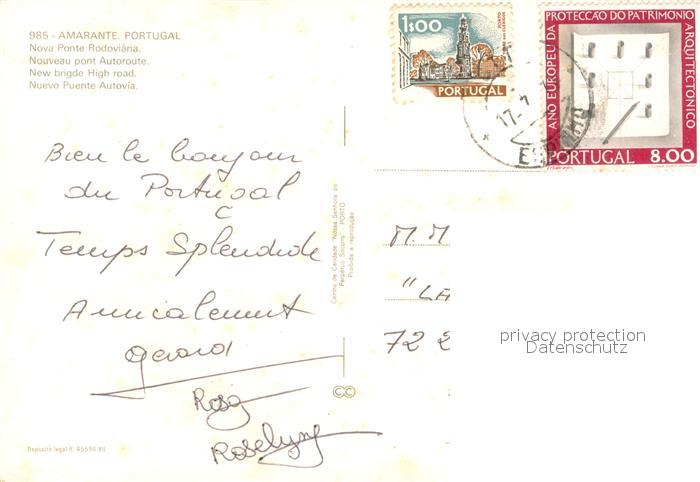 985 - AMARANTE. PORTUGAL
Nova Ponte Rodoviária.
Nouveau pont Autoroute.
New brigde High road.
Nuevo Puente Autovia.
Bien le bonjour
du Portugal
Temps Splendide
Amicalement
Gerard
Rosa
Roselyne
Deposito legal B. 45596 XII
Centro de Caridade "Nossa Senhora do
Perpétuo Socorro" - PORTO
Proibida a reprodução
CC
1$00
PORTO
PORTUGAL
17.
ANO EUROPEU DA PROTECCÃO DO PATRIMÓNIO ARQUITECTÓNICO
PORTUGAL 8.00
M. M
"LA
72 2
privacy protection
Datenschutz